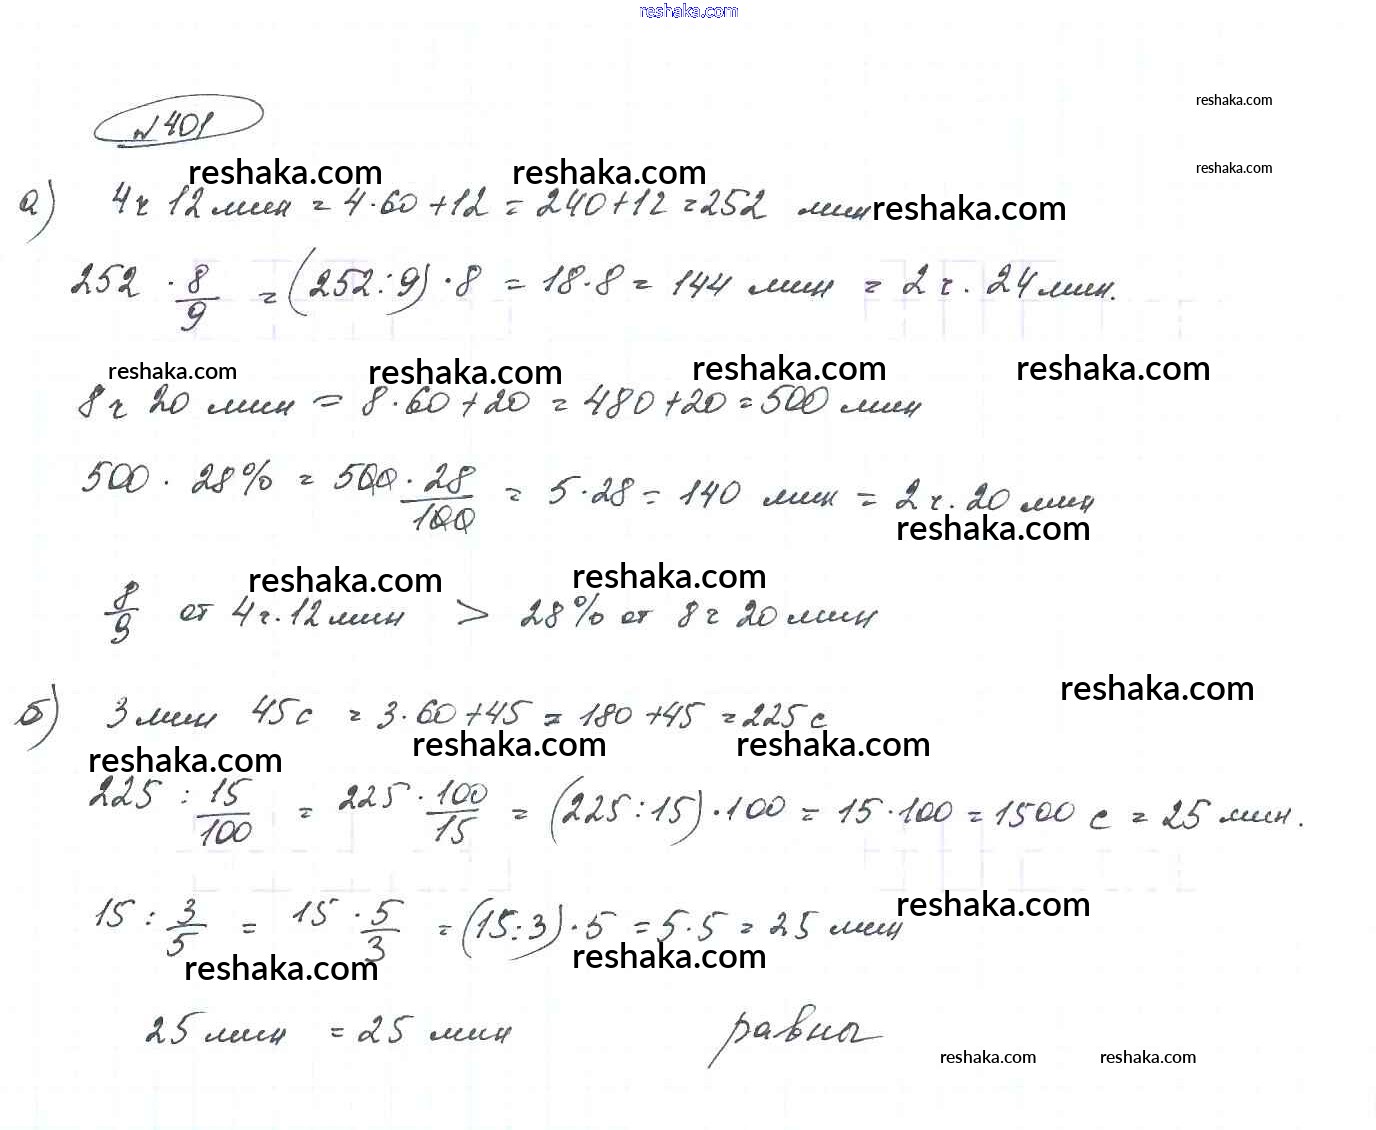 reshaka.com
№ 401
reshaka.com
reshaka.com reshaka.com reshaka.com
а) 4ч 12 мин = 4·60+12 = 240+12 = 252 мин reshaka.com
252 · 8/9 = (252:9)·8 = 18·8 = 144 мин = 2 ч. 24 мин.
reshaka.com reshaka.com reshaka.com reshaka.com
8 ч 20 мин = 8·60+20 = 480+20 = 500 мин
500 · 28% = 500·28/100 = 5·28 = 140 мин = 2 ч. 20 мин
reshaka.com
reshaka.com reshaka.com
8/9 от 4 ч. 12 мин > 28% от 8 ч 20 мин
reshaka.com
б) 3 мин 45 с = 3·60+45 = 180+45 = 225 с
reshaka.com reshaka.com reshaka.com
225 : 15/100 = 225·100/15 = (225:15)·100 = 15·100 = 1500 с = 25 мин.
reshaka.com
15 : 3/5 = 15·5/3 = (15:3)·5 = 5·5 = 25 мин
reshaka.com reshaka.com
25 мин = 25 мин равны
reshaka.com reshaka.com